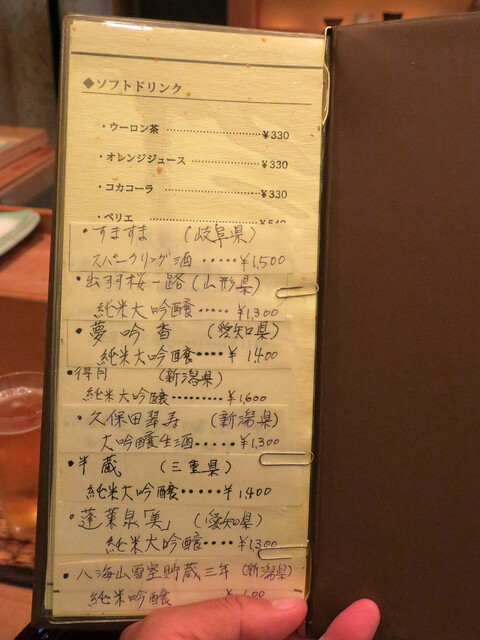 ◆ソフトドリンク
・ウーロン茶 ………………… ¥330
・オレンジジュース ………… ¥330
・コカコーラ ………………… ¥330
・ペリエ
・すますま (岐阜県)
スパークリング酒 ・・・・・ ¥1,500
・出羽桜一路 (山形県)
純米大吟醸 ・・・・・ ¥1,300
・夢吟香 (愛知県)
純米大吟醸 ・・・・ ¥1,400
・得月 (新潟県)
純米大吟醸 ・・・・・・・・・ ¥1,600
・久保田翠寿 (新潟県)
大吟醸生酒 ・・・・・ ¥1,300
・半蔵 (三重県)
純米大吟醸 ・・・・・・ ¥1,400
・蓬莱泉「美」 (愛知県)
純米大吟醸 ・・・・ ¥1,300
・八海山雪室貯蔵三年 (新潟県)
純米吟醸